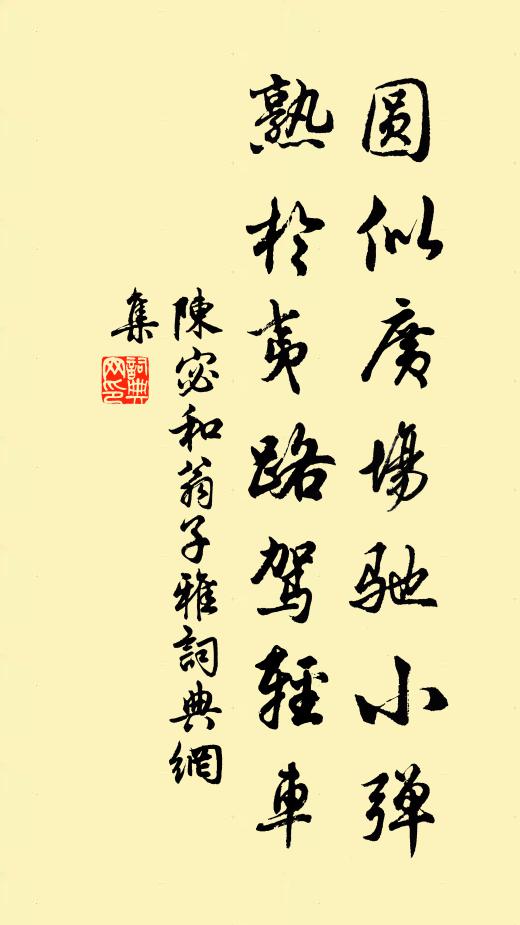 圆似廣場馳小弹
熟於夷路駕輕車
陳宓和翁子雅詞典網
集
詞典
网印